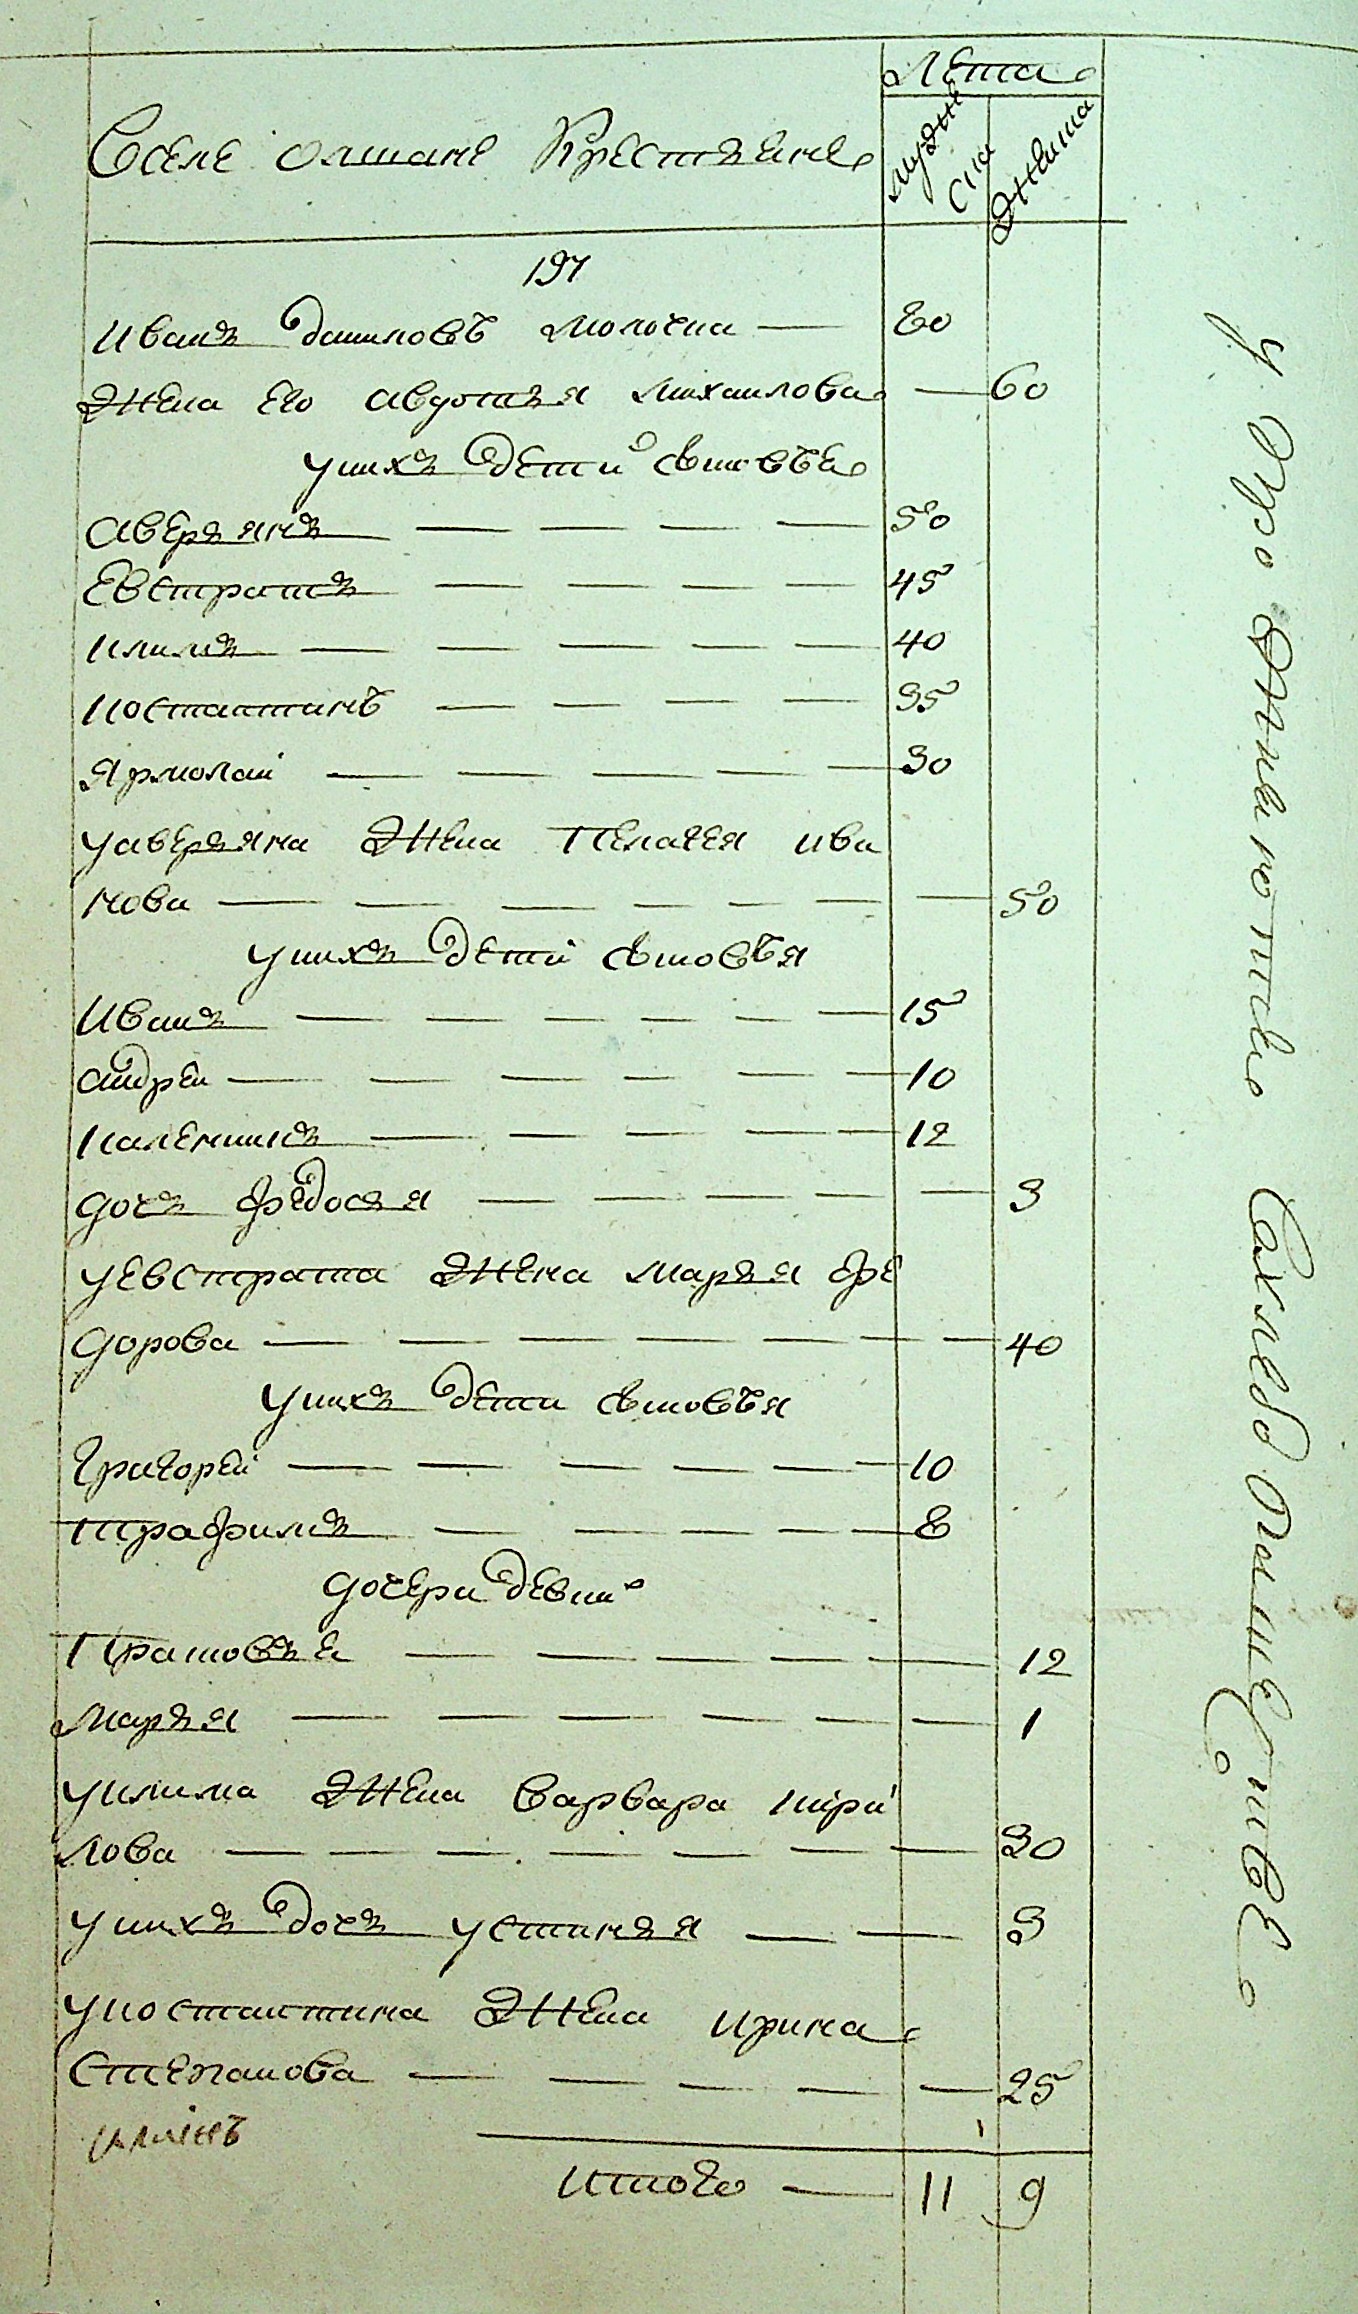 Лета
Вселе олшане Крестьяне
мужеска
Женска
197
Иванъ даниловъ молочка — 80
Жена его авдотья михаилова — 60
унихъ дети сыновья
аверьянъ — — — — 50
Евстратъ — — — — 45
Климъ — — — — — 40
Костантинъ — — — — 35
Ярмолай — — — — — 30
уаверьяна Жена Пелагея ива
нова — — — — — — — 50
унихъ дети сыновья
Иванъ — — — — — — 15
андрей — — — — — — 10
Каленикъ — — — — — 12
дочь федосья — — — — — 3
уевстрата Жена марья фе
дорова — — — — — — — 40
унихъ дети сыновья
Григорей — — — — — — 10
трафимъ — — — — — 8
дочери девки
Прасковья — — — — — — 12
марья — — — — — — 1
уклима Жена варвара кири
лова — — — — — — — 30
унихъ дочь устинья — — 3
укостантина Жена ирина
Степанова — — — — — 25
итого — 11 9